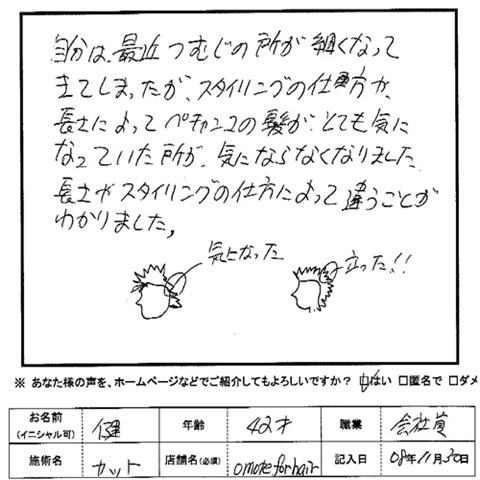 自分は、最近つむじの所が細くなって
きてしまったが、スタイリングの仕方や、
長さによってペチャンコの髪が、とても気に
なっていた所が、気にならなくなりました。
長さやスタイリングの仕方によって違うことが
わかりました。
気になった
立った!!
※ あなた様の声を、ホームページなどでご紹介してもよろしいですか? ☑はい □匿名で □ダメ
お名前(イニシャル可) 健 年齢 42才 職業 会社員
施術名 カット 店舗名(必須) omoteforhair 記入日 08年11月30日